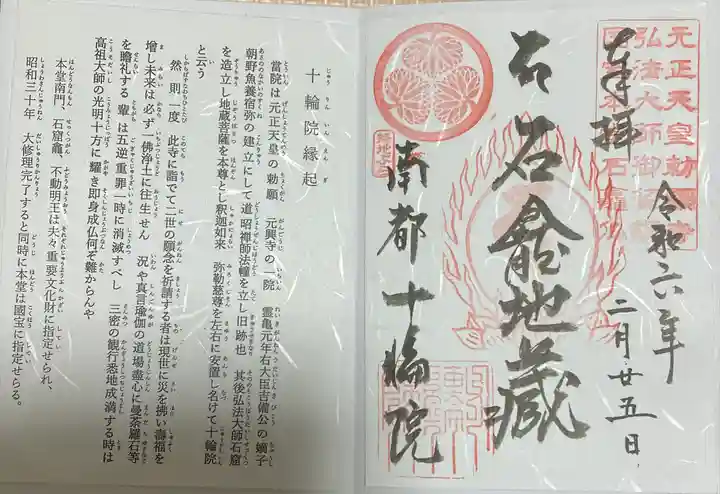 元正天皇勅願
弘法大師御
国
石
奉拝
令和六年
二月廿五日
石龕地蔵
南都十輪院
十輪院縁起
当院は元正天皇の勅願 元興寺の一院 霊亀元年右大臣吉備公の嫡子
朝野魚養宿弥の建立にして道昭禅師法幢を立し旧跡也 其後弘法大師石窟
を造立し地蔵菩薩を本尊とし釈迦如来 弥勒慈尊を左右に安置し名けて十輪院
と云う
然則一度 此寺に詣でて二世の願念を祈請する者は現世に災を拂い壽福を
増し未来は必ず一佛浄土に往生せん 況や真言瑜伽の道場盡心に曼荼羅石等
を瞻礼する輩は五逆重罪一時に消滅すべし 三密の観行悉地成満する時は
高祖大師の光明十方に耀き即身成仏何ぞ難からんや
本堂南門、石窟龕、不動明王は夫々重要文化財に指定せられ、
昭和三十年 大修理完了すると同時に本堂は國宝に指定せらる。